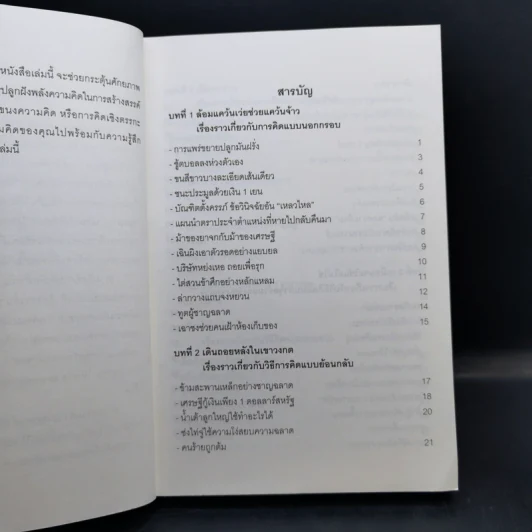 หนังสือเล่มนี้ จะช่วยกระตุ้นศักยภาพ
ปลูกฝังพลังความคิดในการสร้างสรรค์
ขนงความคิด หรือการคิดเชิงตรรกะ
มคิดของคุณไปพร้อมกับความรู้สึก
ล่มนี้
สารบัญ
บทที่ 1 ล้อมแคว้นเว่ยช่วยแคว้นจ้าว
เรื่องราวเกี่ยวกับการคิดแบบนอกกรอบ
- การแพร่ขยายปลูกมันฝรั่ง 1
- ชู้ตบอลลงห่วงตัวเอง 3
- ขนสีขาวบางละเอียดเส้นเดียว 4
- ชนะประมูลด้วยเงิน 1 เยน 5
- บัณฑิตตั้งครรภ์ ข้อวินิจฉัยอัน "เหลวไหล" 6
- แผนนำตราประจำตำแหน่งที่หายไปกลับคืนมา 7
- ม้าของยาจกกับม้าของเศรษฐี 8
- เฉินผิงเอาตัวรอดอย่างแยบยล 9
- บริษัทหย่งเหอ ถอยเพื่อรุก 10
- ไต่สวนข้าศึกอย่างหลักแหลม 11
- ล่ากวางแถบจงหยวน 12
- ทูตผู้ชาญฉลาด 14
- เฉาชงช่วยคนเฝ้าห้องเก็บของ 15
บทที่ 2 เดินถอยหลังในเขาวงกต
เรื่องราวเกี่ยวกับวิธีการคิดแบบย้อนกลับ
- ข้ามสะพานเหล็กอย่างชาญฉลาด 17
- เศรษฐีกู้เงินเพียง 1 ดอลลาร์สหรัฐ 18
- น้ำเต้าลูกใหญ่ใช้ทำอะไรได้ 20
- ซ่งไท่จู่ใช้ความโง่สยบความฉลาด
- คนร้ายถูกต้ม 21